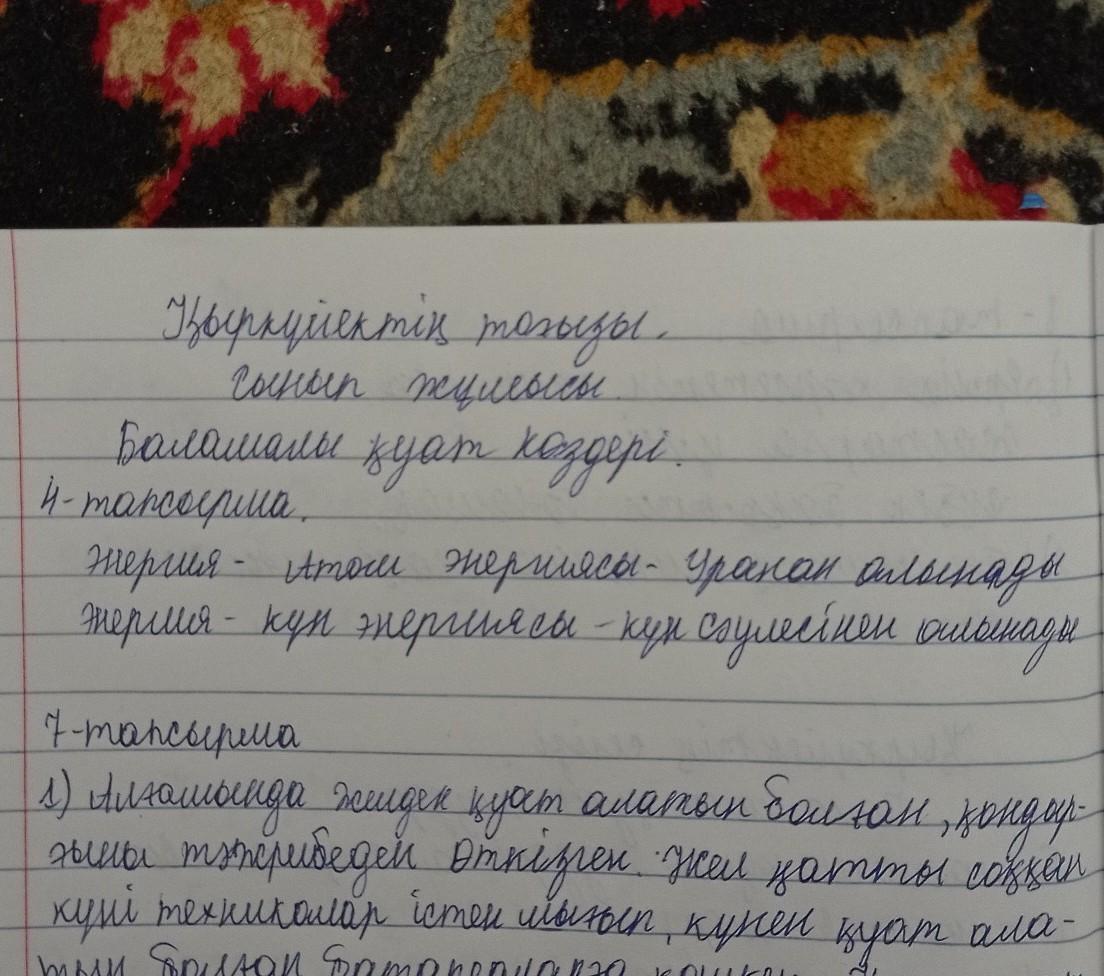 Қыркүйектің тоғызы.
Сынып жұмысы.
Баламалы қуат көздері.
4-тапсырма.
Энергия - Атом энергиясы - Уранан алынады
Энергия - күн энергиясы - күн сәулесінен алынады
7-тапсырма
1) Алғашында желден қуат алатын болған, қондыр-
ғыны тәжрибеден өткізген. Жел қатты соққан
күні техникалар істен шығып, күнен қуат ала-
тын болған батареаларға көшкен.